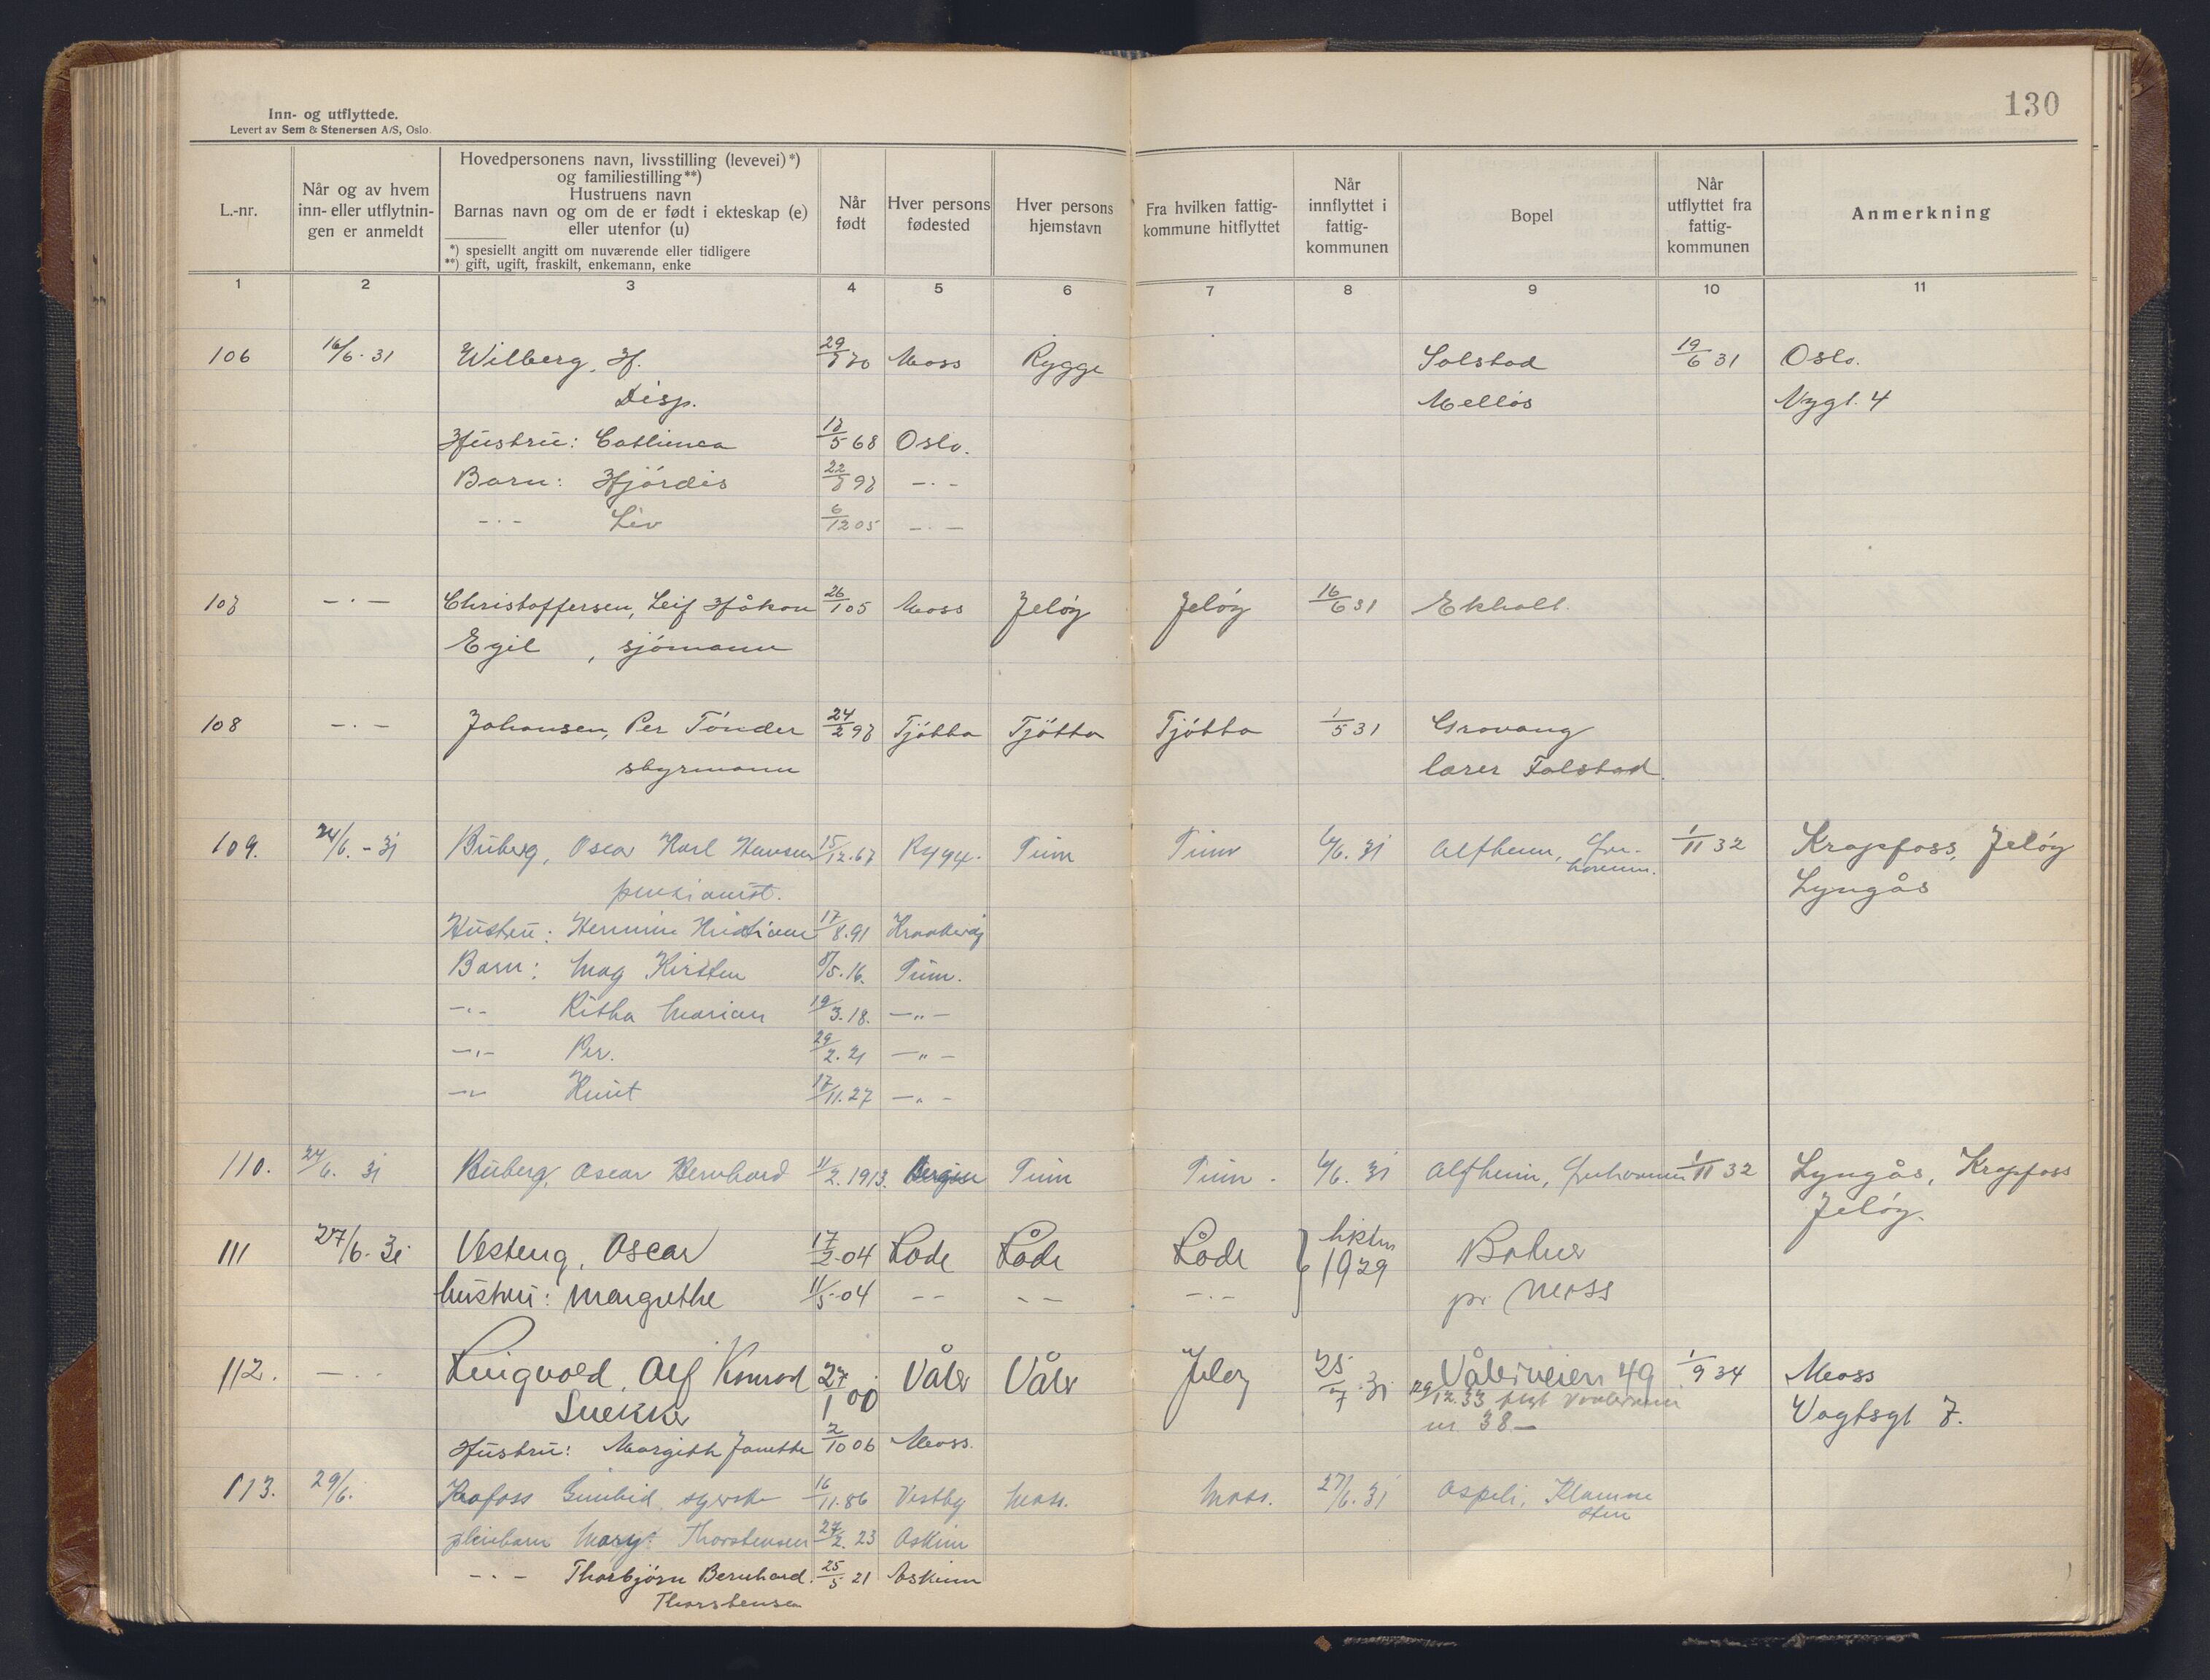 130
Inn- og utflyttede.
Levert av Sem & Stenersen A/S, Oslo.
L.-nr.
Når og av hvem inn- eller utflytnin-gen er anmeldt
Hovedpersonens navn, livsstilling (levevei)*)
og familiestilling**)
Hustruens navn
Barnas navn og om de er født i ekteskap (e)
eller utenfor (u)
*) spesiellt angitt om nuværende eller tidligere
**) gift, ugift, fraskilt, enkemann, enke
Når født
Hver persons fødested
Hver persons hjemstavn
Fra hvilken fattig-kommune hitflyttet
Når innflyttet i fattig-kommunen
Bopel
Når utflyttet fra fattig-kommunen
Anmerkning
1 2 3 4 5 6 7 8 9 10 11
106 16/6-31 Wilberg, Hf. 29/7 70 Moss Rygge Solstad 19/6 31 Oslo.
Disp. Melløs Nygt. 4
Hustru: Cathinca 17/5 68 Oslo.
Barn: Hjørdis 22/7 97 -·-
-·- Liv 6/12 05 -·-
107 -·- Christoffersen, Leif Håkon 26/1 05 Moss Jeløy Jeløy 16/6 31 Ekholt.
Egil, sjømann
108 -·- Johansen, Per Tønder 24/2 97 Tjøtta Tjøtta Tjøtta 1/5 31 Grovang
styrmann lærer Falstad
109. 24/6.-31 Buberg, Oscar Karl Hansen 15/12.67 Rygge. Tune Tune 6/6. 31 Alfheim, 1/11 32 Krapfoss, Jeløy
pensionist. Lyngås
Hustru: 17/8.91
Barn: Mag Kirsten 8/5.16. Tune.
-·- Ritha Marian 19/3.18. -"-
-·- Per. 29/2.21 -"-
-·- Knut 17/11.27 -"-
110. 24/6. 31 Buberg, Oscar Bernhard 11/2.1913. Bergen Tune Tune. 6/6. 31 Alfheim, 1/11 32 Lyngås, Krapfoss
Jeløy.
111 27/6.31 Vesteng, Oscar 17/2-04 Råde Råde Råde høsten 1929 Bohus
hustru: Margrethe 11/5-04 -- -- -·- pr Moss
112. -·- Lingvold, Alf Konrad 27/1 00 Våler Våler Jeløy 25/7.31 Vålerveien 49 1/9 34 Moss
Snekker 29/12.33 flyt Vaalerveien
nr. 38- Vogtsgt 7.
Hustru: Margith Janette 2/10 06 Moss.
113. 29/6. Gunhild syerske 16/11.86 Vestby Moss. Moss. 27/6.31 Aspeli,
pleiebarn Mary Thorstensen 27/2.23 Askim
-·- Thorbjørn Bernhard. 25/5 21 Askim
Thorstensen